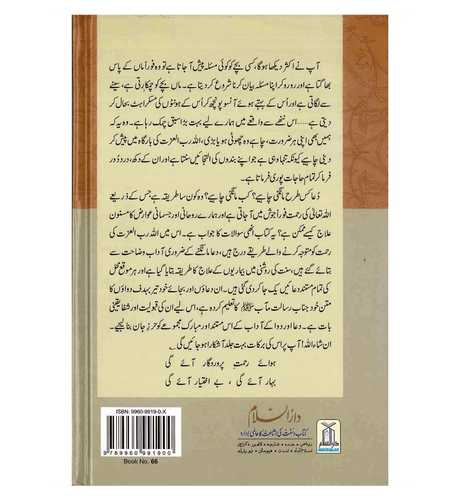 آپ نے اکثر دیکھا ہوگا، کسی بچے کو کوئی مسئلہ پیش آ جاتا ہے تو وہ فوراً ماں کے پاس
بھاگتا ہے اور رو رو کر اپنا مسئلہ بیان کرنا شروع کر دیتا ہے۔ ماں بچے کو چمکارتی ہے، سینے
سے لگاتی ہے اور اُس کے بہتے ہوئے آنسو پونچھ کر اُس کے ہونٹوں کی مسکراہٹ بحال کر
دیتی ہے ... اس ننھے سے واقعے میں ہمارے لیے بہت بڑا سبق چمک رہا ہے۔ وہ یہ کہ
ہمیں بھی اپنی ہر ضرورت، چاہے وہ چھوٹی ہو یا بڑی، اللہ رب العزت کی بارگاہ میں پیش کر
دینی چاہیے کیونکہ تنہا وہی ہے جو اپنے بندوں کی التجائیں سنتا ہے اور ان کے دکھ، درد دُور
فرما کر تمام حاجات پوری فرماتا ہے۔
دُعا کس طرح مانگنی چاہیے؟ کب مانگنی چاہیے؟ وہ کون سا طریقہ ہے جس کے ذریعے
اللہ تعالیٰ کی رحمت فوراً جوش میں آ جاتی ہے اور ہمارے روحانی اور جسمانی عوارض کا مسنون
علاج کیسے ممکن ہے؟ یہ کتاب انھی سوالات کا جواب ہے۔ اس میں اللہ رب العزت کی
رحمت کو متوجہ کرنے والے طریقے درج ہیں، دعا مانگنے کے ضروری آداب وضاحت سے
بتائے گئے ہیں، سنت کی روشنی میں بیماریوں کے علاج کا طریقہ بتایا گیا ہے اور ہر موقع محل
کی تمام مستند دعائیں یکجا کر دی گئی ہیں۔ ان دعاؤں اور بجائے خود تیر بہدف دواؤں کا
متن خود جناب رسالت مآب ﷺ کا تعلیم کردہ ہے، اس لیے ان کی قبولیت اور شفا یقینی
بات ہے۔ دعا اور دوا کے آداب کے اس مستند اور مبارک مجموعے کو حرز جان بنا لیجیے۔
ان شاء اللہ! آپ پر اس کی برکات بہت جلد آشکارا ہو جائیں گی۔
ہوائے رحمتِ پروردگار آئے گی
بہار آئے گی، بے اختیار آئے گی
دارالسلام
کتاب و سنت کی اشاعت کا عالمی ادارہ
ریاض، جدہ، شارجہ، لاہور، کراچی
اسلام آباد، لندن، ہیوسٹن، نیو یارک
DARUSSALAM
ISBN: 9960-9919-0-X
9 789960 991900
Book No. 66